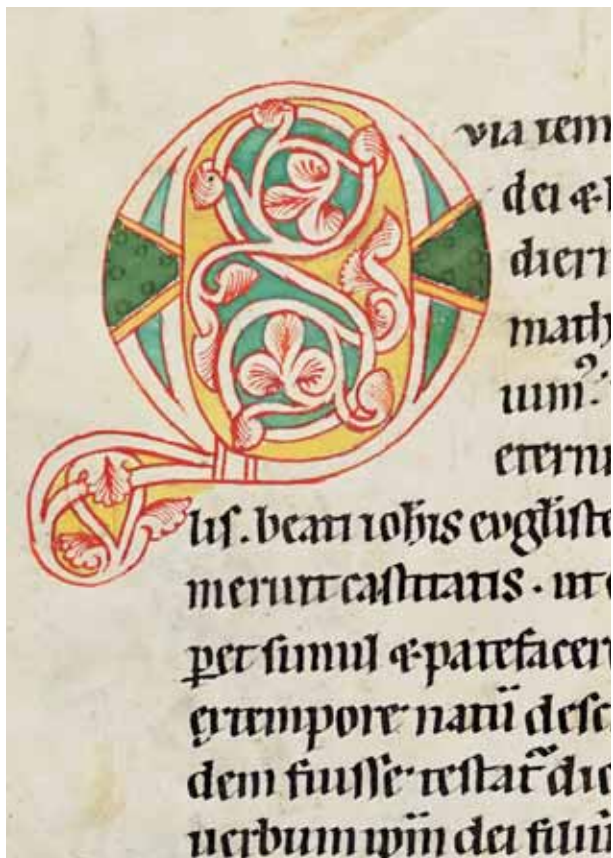 Q via tem
dei &
diern
math
uum
eternu
lis. beati ioh̅is evg̅liste
meruit castitatis. ut
pet simul & patefacere
tempore natū desc
dem fuisse testat̅ die
uerbum dei filiu